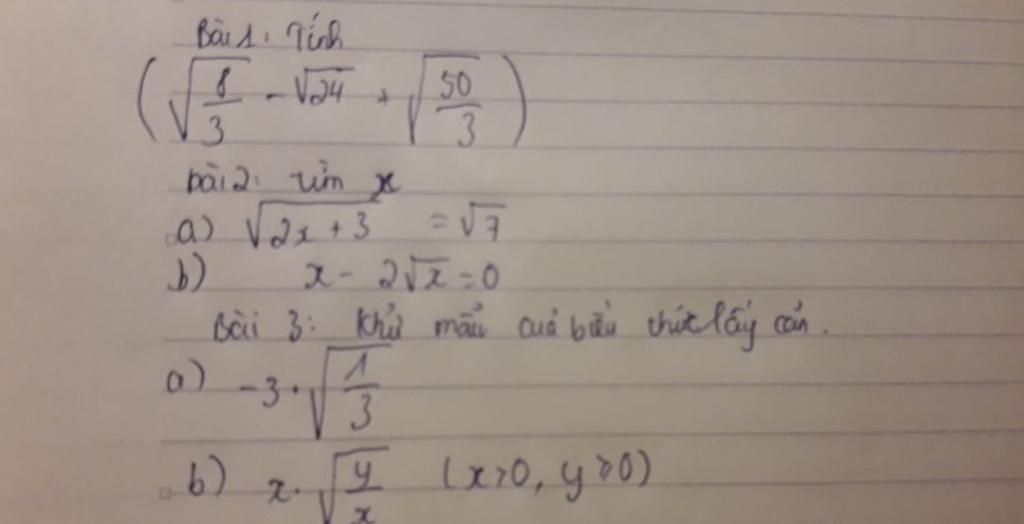 Bài 1: Tính
( √(8/3) - √24 + √(50/3) )
bài 2: tìm x
a) √(2x + 3) = √7
b) x - 2√x = 0
Bài 3: Khử mẫu cuả biểu thức lấy căn.
a) -3 · √(1/3)
b) x · √(y/x) (x>0, y≥0)